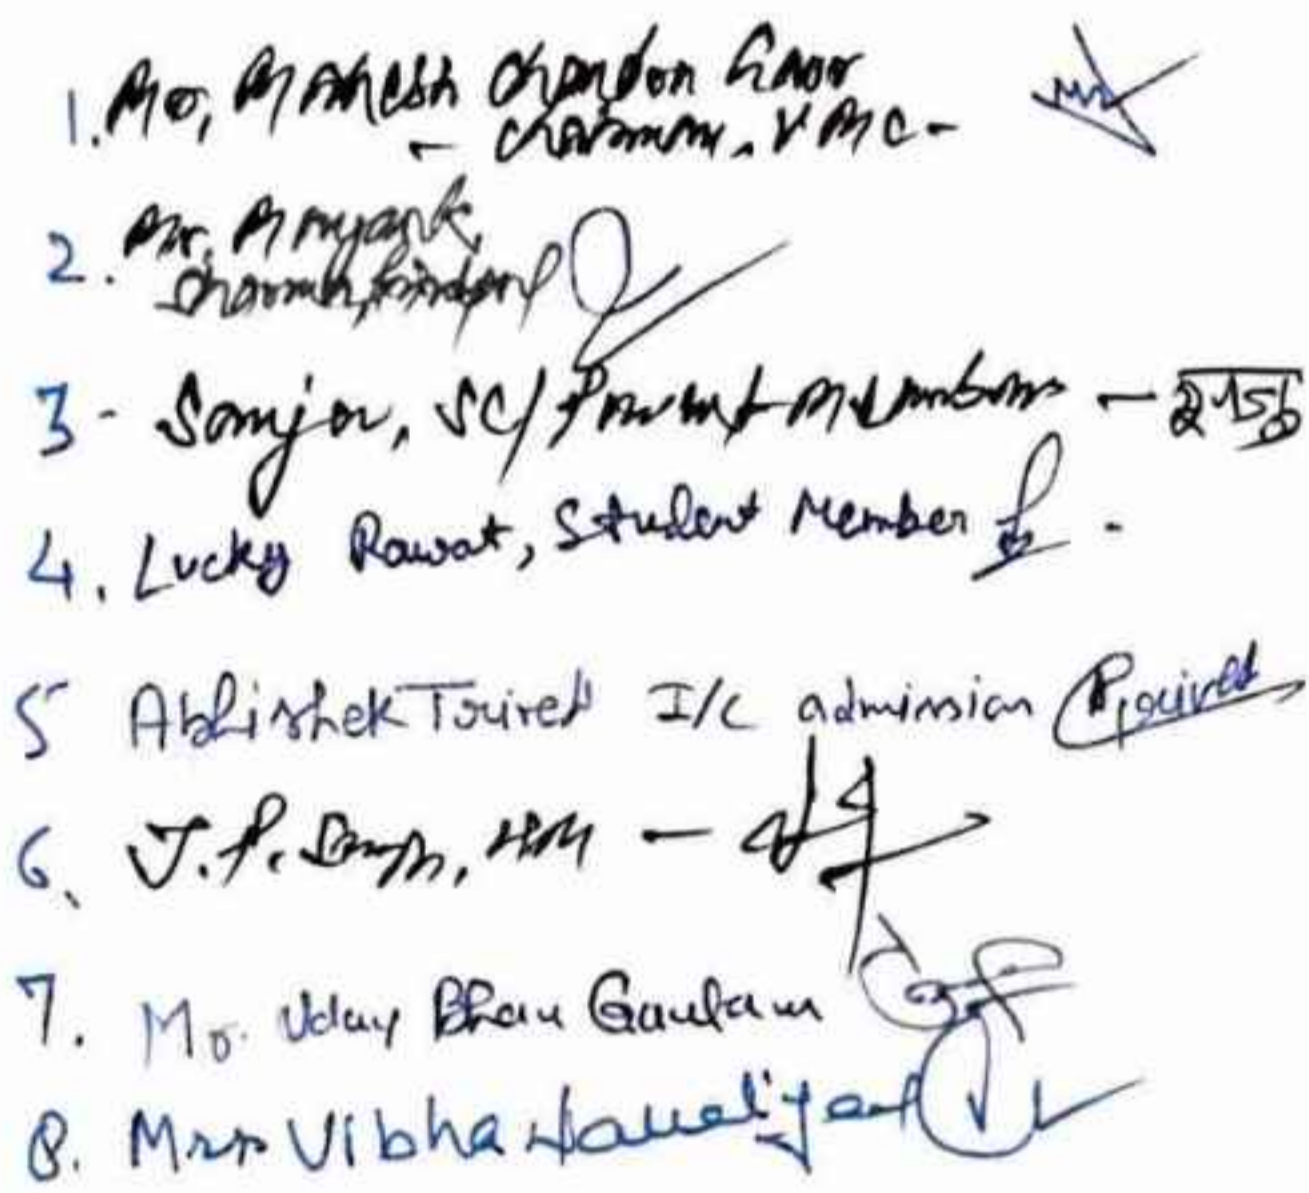 1. Mr, Mahesh Chandra Gaur
- Chairman, VMC -
2. Mr. Mayank
Sharma, Principal
3- Sanjai, SC/Parent Members -
4. Lucky Rawat, Student Member
5 Abhishek Trivedi I/C admission
6. J.P. Singh, HM -
7. Mr. Uday Bhan Gautam
8. Mrs Vibha